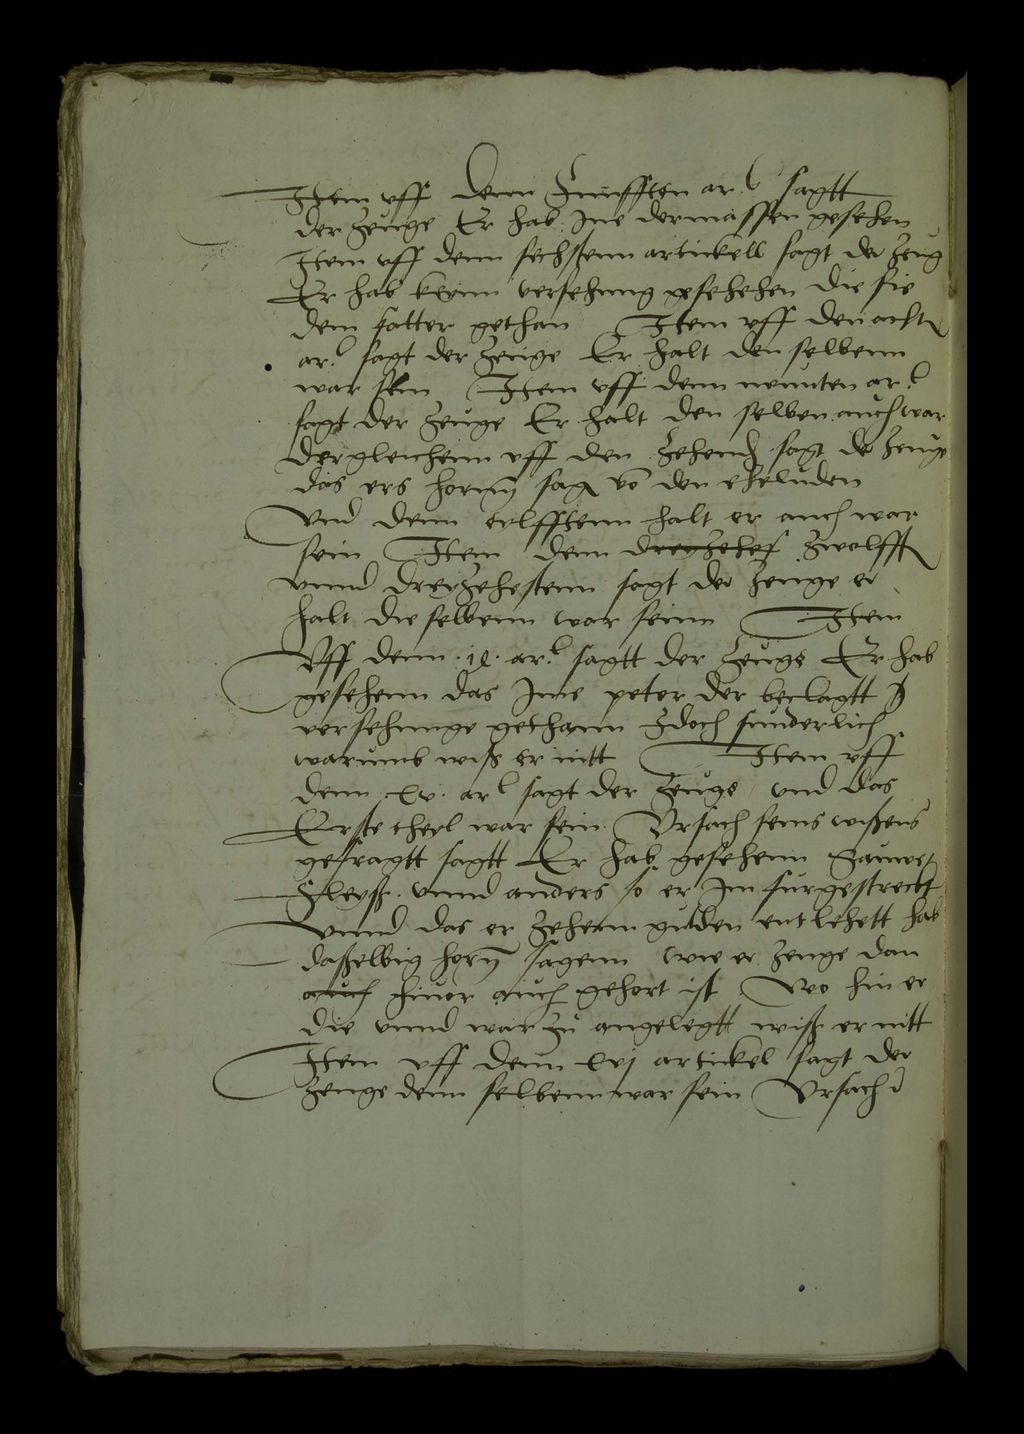 Item uff denn Funfften ar. sagtt
der Zeuge Er hab Ine dermassen gesehen
Item uff denn sechstenn artickell sagt der Zeug
Er hab keinn versehung gesehehen die sie
dem fatter gethan Item uff den acht
ar. sagt der Zeuge Er halt den selbenn
war sein Item uff denn neunten ar.
sagt der Zeuge Er halt den selben auch war
dergleichenn uff den Zehend sagt der Zeuge
das ers horenn sag von den eheluden
Und denn eelfftenn halt er auch war
sein Item denn dreyzehest Zwolfft
unnd dreyzehestenn sagt der Zeuge er
halt die selbenn war seinn Item
Uff denn ar. sagtt der Zeuge Er hab
gesehenn das Ime peter der beclagtt
versehunge gethann Idoch sunderlich
warumb wiß er nitt Item uff
denn xv. ar. sagt der Zeuge und das
Erste theyl war sein Ursach seins wissens
gefragtt sagtt Er hab gesehenn
Fleysß unnd anders so er Im furgestreckt
unnd das er Zehenn gulden entlehett hab
dasselbig horenn sagenn wie er Zeuge dan
auch hiuor auch gehort ist Wo hin er
die unnd war zu angelegtt wiß er nitt
Item uff denn xvj artickel sagt der
Zeuge denn selbenn war sein Ursach